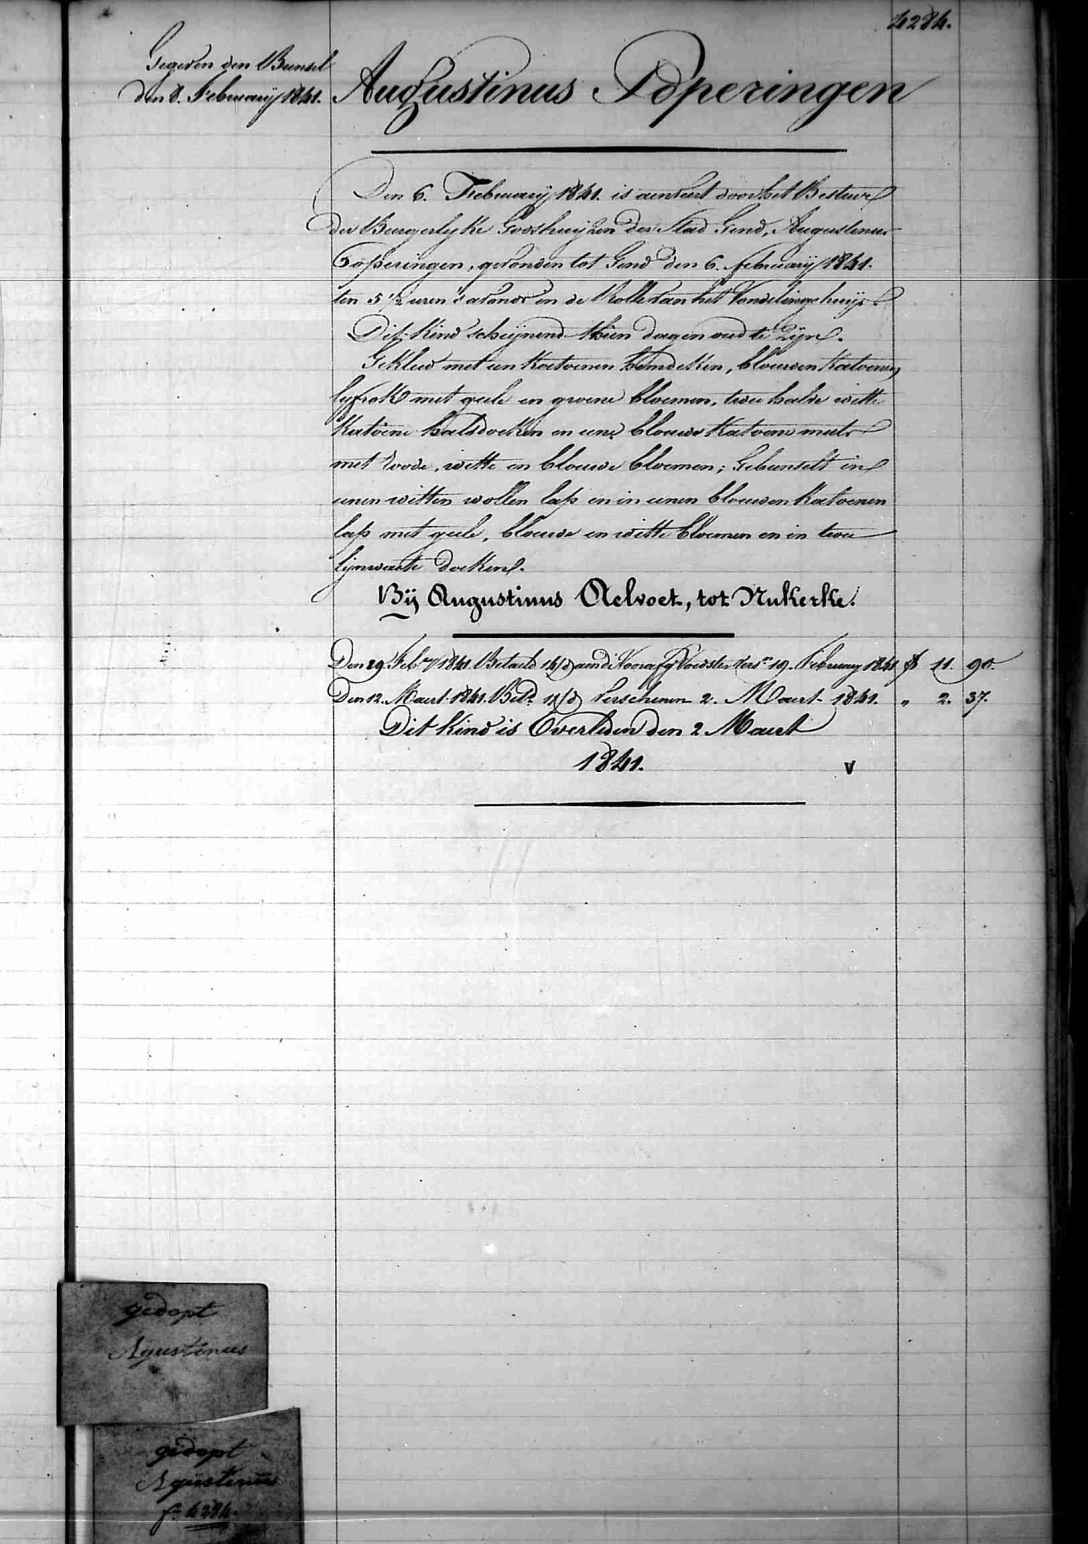 4284.
Gegeven den Bunsel
den 8. February 1841.
Augustinus Poperingen
Den 6. February 1841. is aenveert door het Bestuur
der Burgerlyke Godshuyzen der Stad Gend, Augustinus
Poperingen, gevonden tot Gend den 6. february 1841.
ten 5 ½ uren 's avonds in de Rolle van het Vondelingshuys.
Dit kind scheynend thien dagen oud te zyn.
Gekleed met een Katoenen hemdeken, blauwen Katoenen
lyfrok met geele en groene bloemen, twee halve witte
Katoene halsdoeken en eene blauwe Katoene muts
met roode, witte en blauwe bloemen; Gebunselt in
eenen witten wollen lap en in eenen blauwen Katoenen
lap met geele, blauwe en witte bloemen en in twee
lynwaete doeken.
Bÿ Augustinus Aelvoet, tot Nukerke.
Den 29 Feb.ry 1841 Betaeld aen de Voedster Vers.n 19. February 1841 11. 90.
Den 12. Maert 1841. Bet.d Verschenen 2. Maert 1841. " 2. 37.
Dit kind is Overleden den 2 Maert
1841. v
gedopt
Agustinus
gedopt
Agustinus
f.° 4284.